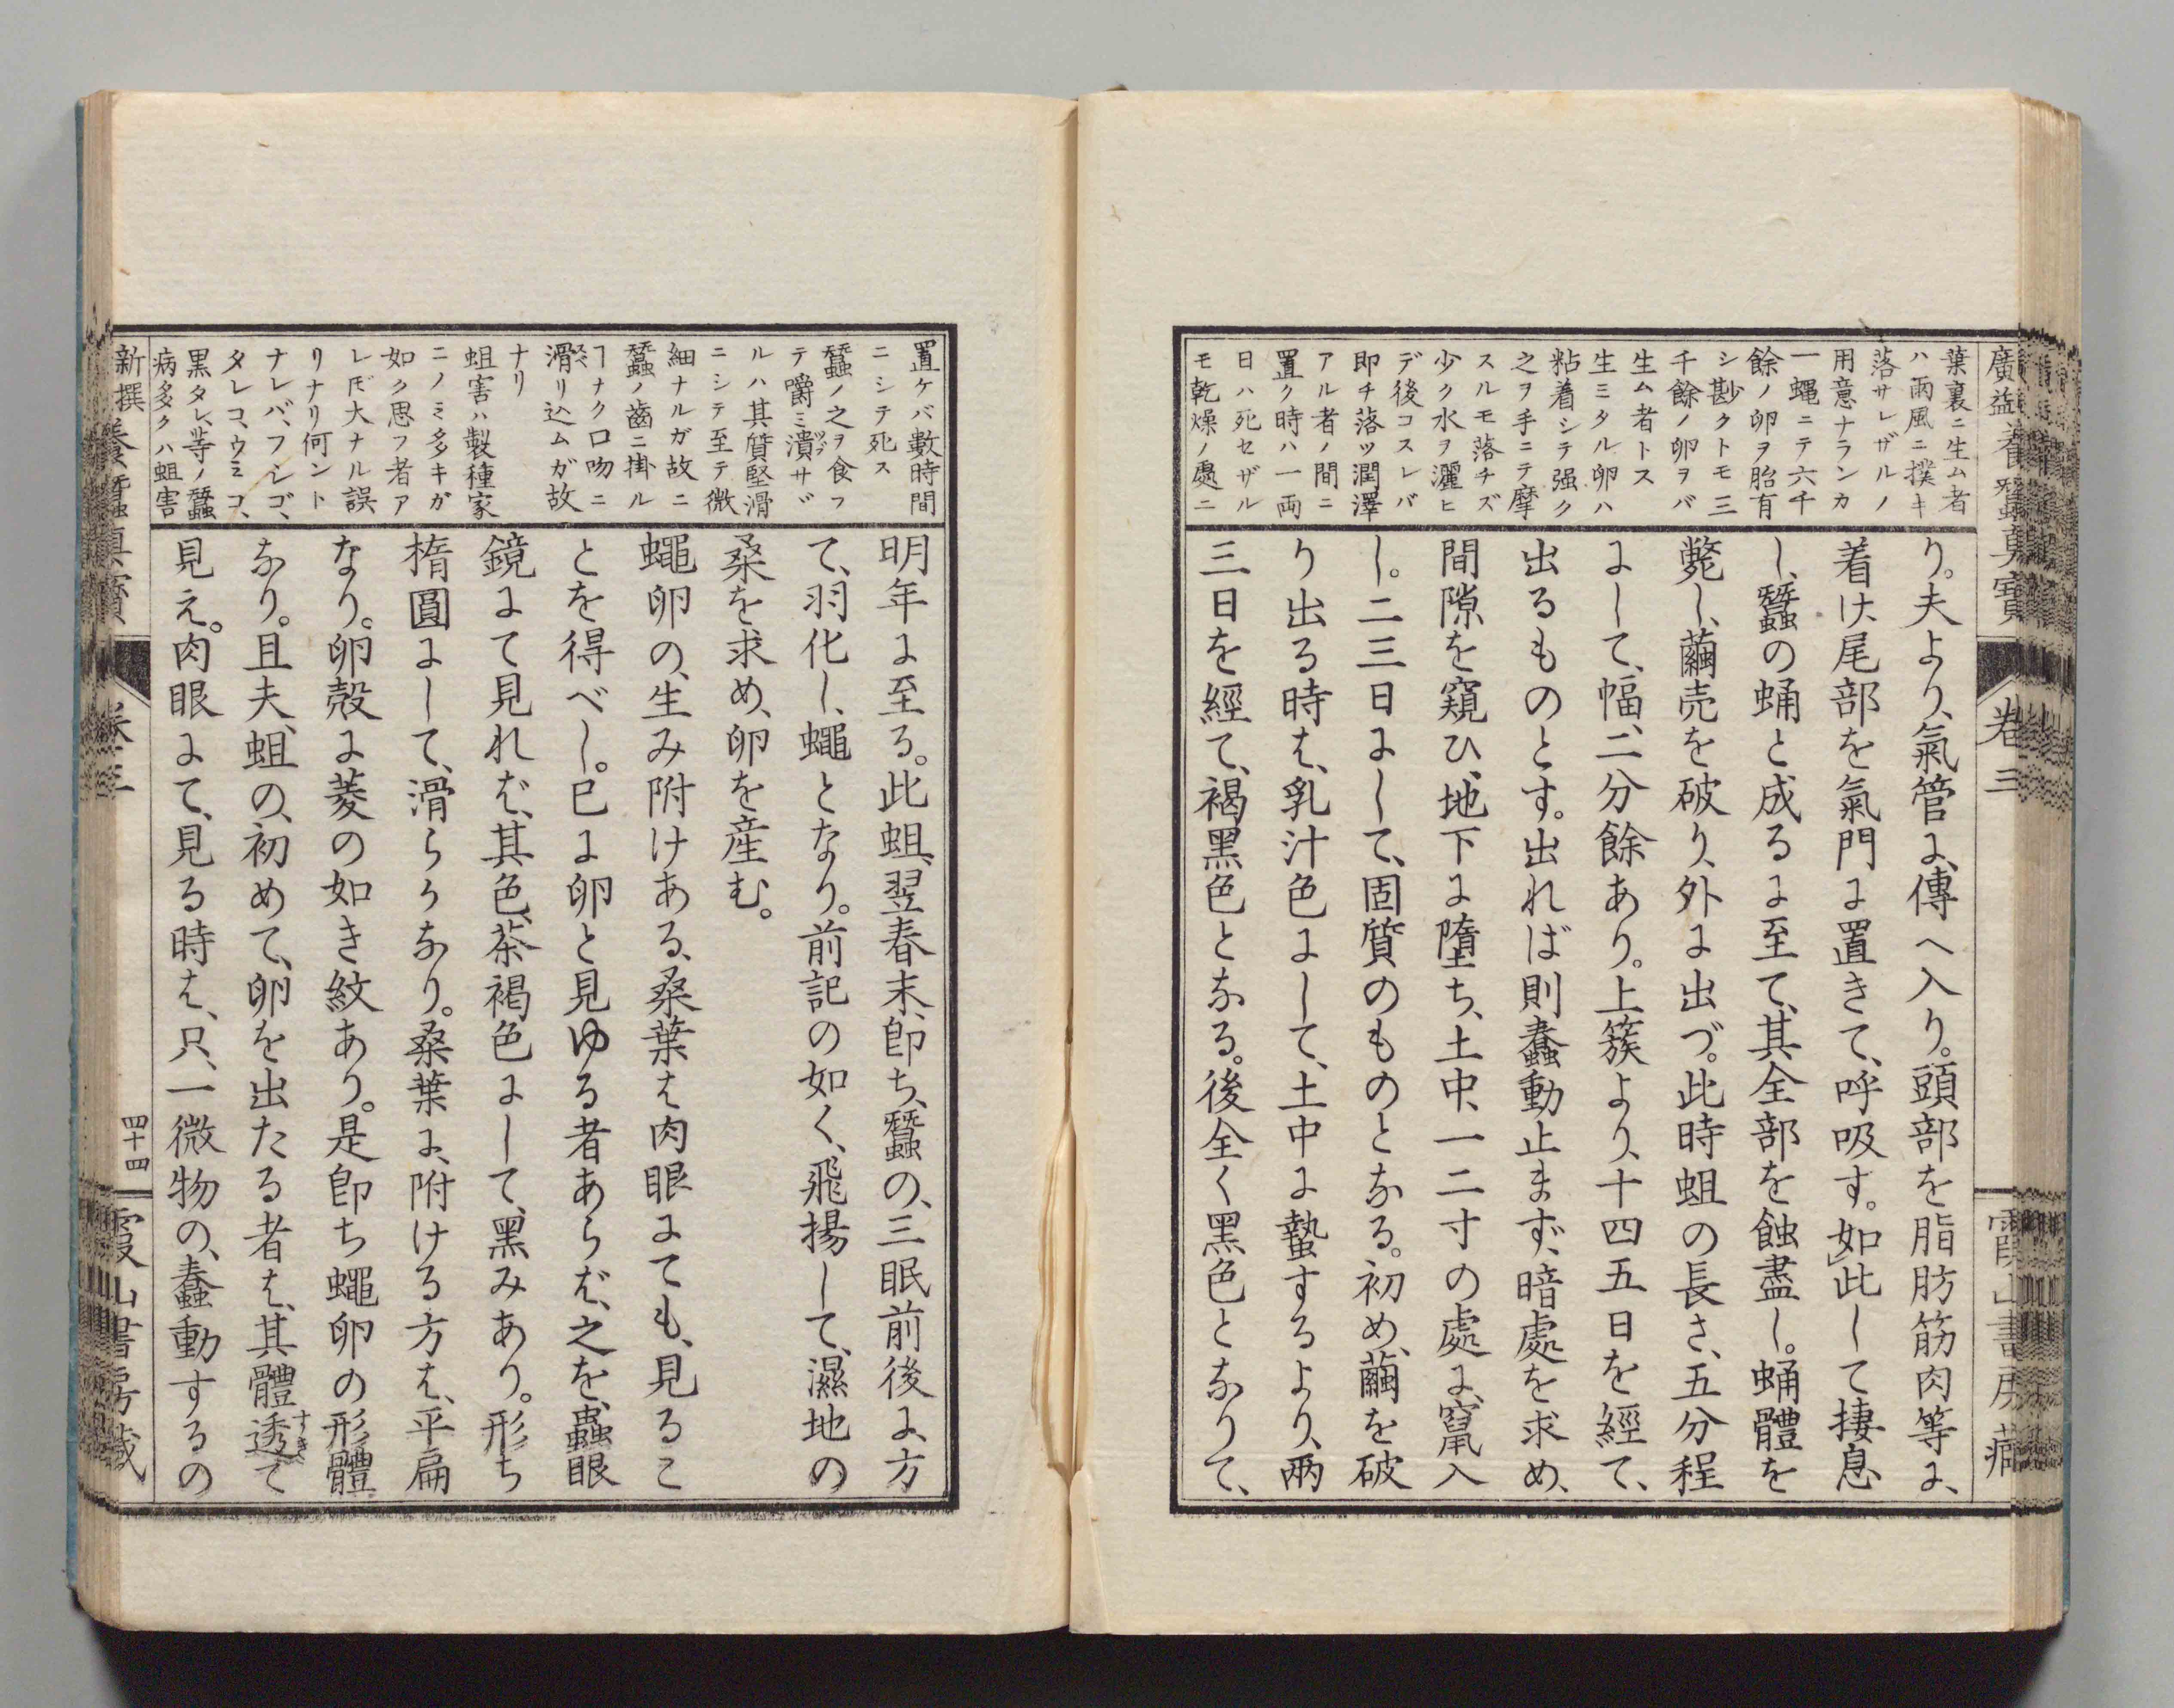 廣益養蠶真寶
卷三
霞山書房藏
葉裏ニ生ム者
ハ雨風ニ撲キ
落サレザルノ
用意ナランカ
一蠅ニテ六千
餘ノ卵ヲ胎有
シ尠クトモ三
千餘ノ卵ヲバ
生ム者トス
生ミタル卵ハ
粘着シテ强ク
之ヲ手ニテ摩
スルモ落チズ
少ク水ヲ灑ヒ
デ後コスレバ
即チ落ツ潤澤
アル者ノ間ニ
置ク時ハ一両
日ハ死セザル
モ乾燥ノ處ニ
り。夫より、氣管に、傳へ入り。頭部を脂肪筋肉等に、
着け、尾部を氣門に置きて、呼吸す。如此して捿息
し、蠶の蛹と成るに至て、其全部を蝕盡し。蛹體を
斃し、繭壳を破り、外に出づ。此時蛆の長さ、五分程
にして、幅、二分餘あり。上簇より、十四五日を經て、
出るものとす。出れば則蠢動止まず、暗處を求め、
間隙を窺ひ、地下に墮ち、土中、一二寸の處に、竄入
し。二三日にして、固質のものとなる。初め、繭を破
り出る時は、乳汁色にして、土中に蟄するより、兩
三日を經て、褐黑色となる。後全く黑色となりて、
置ケバ數時間
ニシテ死ス
蠶ノ之ヲ食フ
テ嚼ミ潰サヾ
ルハ其質堅滑
ニシテ至テ微
細ナルガ故ニ
蠶ノ齒ニ掛ル
ヿナク口吻ニ
滑リ込ムガ故
ナリ
蛆害ハ製種家
ニノミ多キガ
如ク思フ者ア
レ𪜈大ナル誤
リナリ何ント
ナレバ、フシゴ、
タレコ、ウミコ、
黒タレ、等ノ蠶
病多クハ蛆害
明年に至る。此蛆、翌春末、即ち、蠶の、三眠前後に、方
て、羽化し、蠅となり。前記の如く、飛揚して、濕地の
桑を求め、卵を産む。
蠅卵の、生み附けある、桑葉は肉眼にても、見るこ
とを得べし。已に卵と見ゆる者あらば、之を、蟲眼
鏡にて見れば、其色、茶褐色にして、黑みあり。形ち
楕圓にして、滑らかなり。桑葉に、附ける方は、平扁
なり。卵殻に菱の如き紋あり。是即ち蠅卵の形體
なり。且夫、蛆の、初めて、卵を出たる者は、其體透て
見え。肉眼にて、見る時は、只、一微物の、蠢動するの
新撰養蠶真寶
卷三
四十四
霞山書房藏